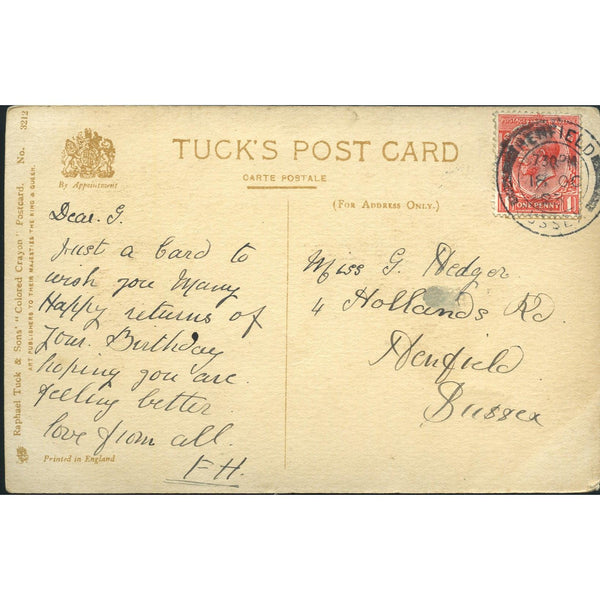 TUCK'S POST CARD
CARTE POSTALE
(FOR ADDRESS ONLY.)
By Appointment
Raphael Tuck & Sons' "Colored Crayon" Postcard. No. 3212
ART PUBLISHERS TO THEIR MAJESTIES THE KING & QUEEN.
Dear. G.
Just a Card to
wish you Many
Happy returns of
your. Birthday
hoping you are.
feeling better.
love from all.
F.H.
Printed in England
ONE PENNY
HENFIELD
7 30 PM
18 OC
SUSSEX
Miss G. Hedger
4 Hollands Rd.
Henfield
Sussex